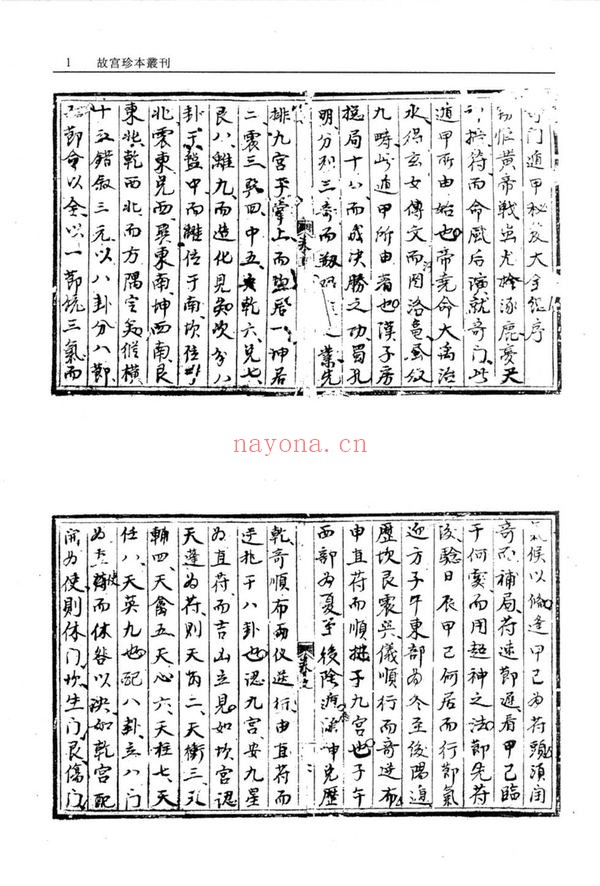 1 故宮珍本叢刊
奇门遁甲秘及大全经序
昔怄黄帝战蚩尤於涿鹿憂尹
神授符而命風后演就奇门此
遁甲所由始也帝竞命大禹治
水得玄女傳文而图洛龟画纹
九畴此遁甲所由著也漢子房
提局十八而成决勝之功蜀孔
明分列三奇而 業先
排九宫乎掌上而 居一坤居
二震三巽四中五乾六兑七
艮八離九而造化見矣次分八
卦于盤中而離位于南坎位于
北震東兑西巽東南坤西南艮
東北乾西北而方隅定矣縱横
十五錯叙三元以八卦分八節
節命以全以一節统三氣而
nayona.cn
氣候以脩逢甲己为符頭頭闰
奇而補局符速節遁看甲己臨
于何宫而用超神之法節先符
後驗日辰甲己何居而行節氣
迎方子午東部为冬至後陽遁
歷坎艮震巽儀順行而奇逆布
申直符而順 于九宫也子午
西部为夏至後陰遁 坤兑歷
乾奇順布而仪逆行由直符而
逆飛于八卦也認九宫安九星
为直符而吉凶立見如坎宫認
天蓬为符則天芮二天衝三天
輔四天禽五天心六天柱七天
任八天英九也配八卦立八门
为直使而休咎以决如乾宫配
開为使則休门坎生门艮傷门